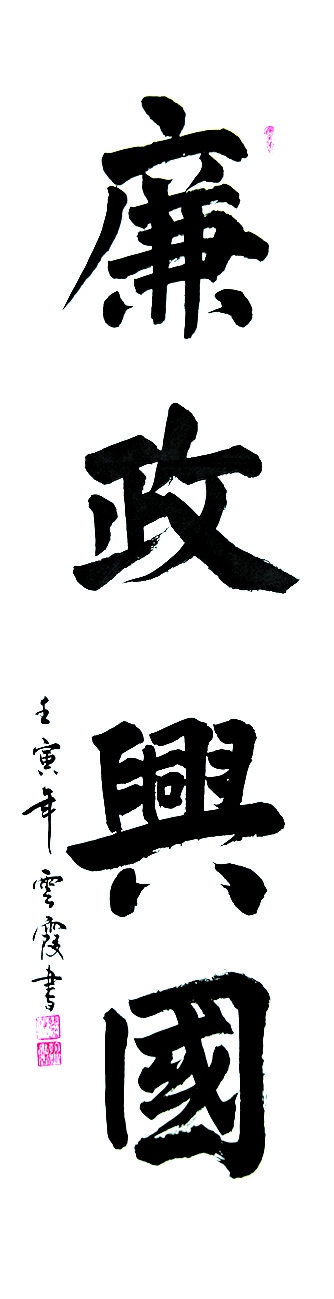 廉政興國
壬寅年雲霞書